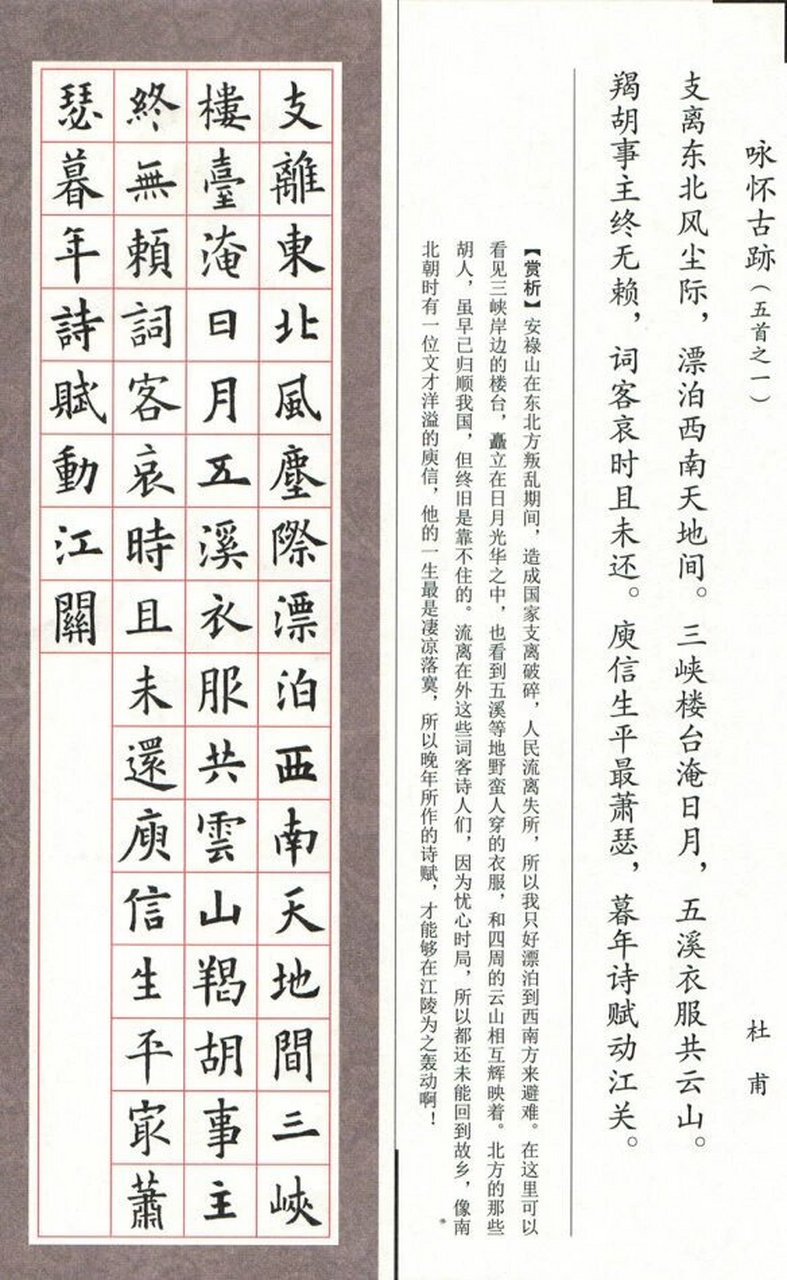 咏怀古跡（五首之一）　杜甫
支离东北风尘际，漂泊西南天地间。三峡楼台淹日月，五溪衣服共云山。
羯胡事主终无赖，词客哀时且未还。庾信生平最萧瑟，暮年诗赋动江关。
【赏析】安禄山在东北方叛乱期间，造成国家支离破碎，人民流离失所，所以我只好漂泊到西南方来避难。在这里可以
看见三峡岸边的楼台，矗立在日月光华之中，也看到五溪等地野蛮人穿的衣服，和四周的云山相互辉映着。北方的那些
胡人，虽早已归顺我国，但终旧是靠不住的。流离在外这些词客诗人们，因为忧心时局，所以都还未能回到故乡，像南
北朝时有一位文才洋溢的庾信，他的一生最是凄凉落寞，所以晚年所作的诗赋，才能够在江陵为之轰动啊！
支離東北風塵際漂泊西南天地間三峽
樓臺淹日月五溪衣服共雲山羯胡事主
終無賴詞客哀時且未還庾信生平㝡蕭
瑟暮年詩賦動江關